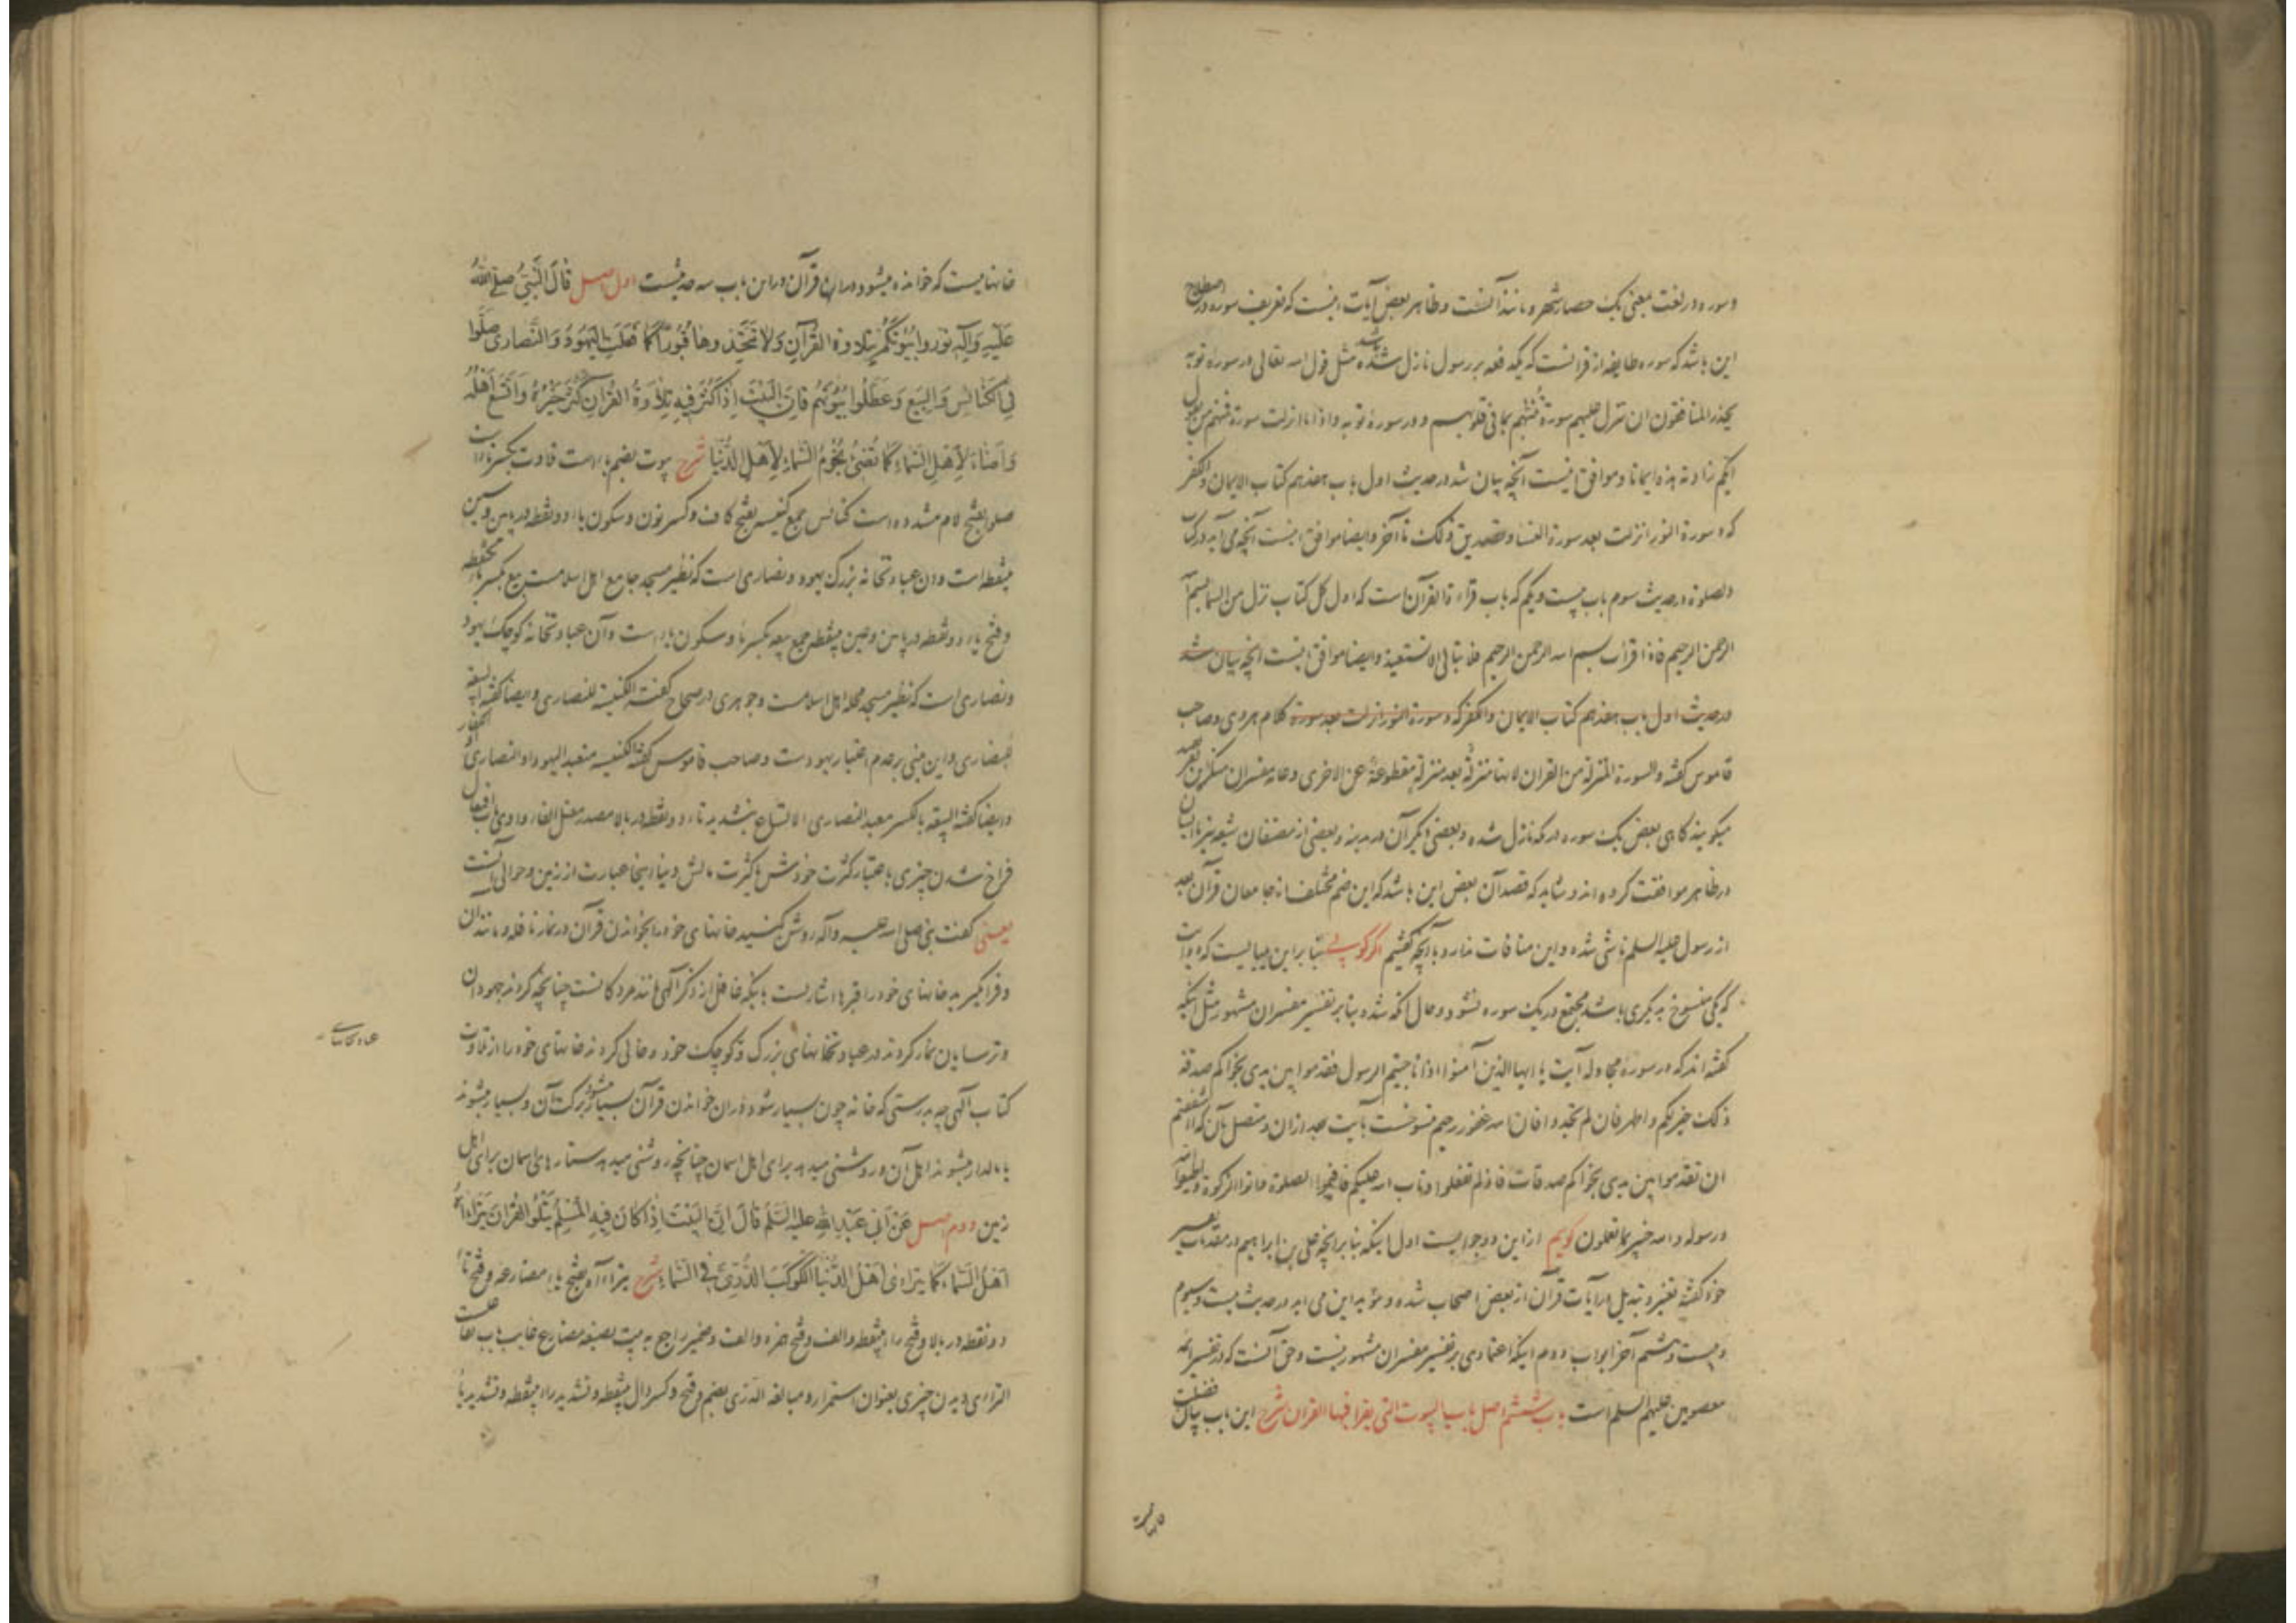 و سوره در لغت بمعنی یک حصار شهر و مانند آنست و ظاهر بعض آیات اینست که تعریف سوره در اصطلاح
این باشد که سوره طایفه از قرآنست که یکدفعه بر رسول نازل شده باشد مثل قول الله تعالی در سوره توبه
یحذر المنافقون ان تنزل علیهم سورة تنبئهم بما فی قلوبهم و در سورهٔ توبه و اذا ما انزلت سورة فمنهم من یقول
ایکم زادته هذه ایمانا و موافق اینست آنچه بیان شد در حدیث اول باب هفدهم کتاب الایمان و الکفر
که و سورة النور انزلت بعد سورة النساء و تصدیق ذلک تا آخر و ایضا موافق اینست آنچه می آید در کتاب
الصلوة در حدیث سوم باب بیست و یکم که باب قراءة القرآن است که اول کل کتاب نزل من السماء بسم الله
الرحمن الرحیم فاذا قرأت بسم الله الرحمن الرحیم فلا تبالی الا تستعیذ و ایضا موافق اینست آنچه بیان شد
در حدیث اول باب هفدهم کتاب الایمان و الکفر که و سورة النور انزلت بعد سورة کلام هروی و صاحب
قاموس گفته و السورة المنزلة من القرآن لانها منزلة بعد منزلة مقطوعة عن الاخری و عامه مفسران منکرین
میگویند گاهی بعض یک سوره در مکه نازل شده و بعضی دیگر آن در مدینه و بعضی از مصنفان شیعه نیز با ایشان
در ظاهر موافقت کرده اند و شاید که قصد آن بعض این باشد که این ضم مختلف از جامعان قرآن بعد
از رسول علیه السلم ناشی شده و این منافات ندارد با آنچه گفتیم اگر گویی بنا بر این میبایست که دو آیت
که یکی منسوخ بدیگری باشد مجتمع در یک سوره نشود و حال آنکه شده بنا بر تفسیر مفسران مشهور مثل اینکه
گفته اند که در سورهٔ مجادله آیت یا ایها الذین آمنوا اذا ناجیتم الرسول فقدموا بین یدی نجواکم صدقة
ذلک خیر لکم و اطهر فان لم تجدوا فان الله غفور رحیم منسوخست بآیت بعد ازان و متصل بآن که ااشفقتم
ان تقدموا بین یدی نجواکم صدقات فاذ لم تفعلوا و تاب الله علیکم فاقیموا الصلوة و اتوا الزکوة و اطیعوا الله
و رسوله و الله خبیر بما تعملون گویم ازاین دو جوابست اول اینکه بنا بر آنچه علی بن ابراهیم در مقدمات تفسیر
خود گفته تغییر و تبدیل در آیات قرآن از بعض اصحاب شده و مؤید این می آید در حدیث بیست و سیوم
و بیست و هشتم آخر ابواب دوم اینکه اعتمادی بر تفسیر مفسران مشهور نیست و حق آنست که در تفسیر ائمه
معصومین علیهم السلم است باب ششم اصل باب البیوت التی یقرأ فیها القرآن شرح این باب بیان فضیلت
خانهاییست
خانهاییست که خوانده میشود دران قرآن و در این باب سه حدیثست اول اصل قَالَ النَّبِیُّ صَلَّی اللهُ
عَلَیْهِ وَآلِهِ نَوِّرُوا بُیُوتَکُمْ بِتِلَاوَةِ الْقُرْآنِ وَلَا تَتَّخِذُوهَا قُبُورًا کَمَا فَعَلَتِ الْیَهُودُ وَالنَّصَارَی صَلَّوْا
فِی الْکَنَائِسِ وَالْبِیَعِ وَعَطَّلُوا بُیُوتَهُمْ فَاِنَّ الْبَیْتَ اِذَا کَثُرَ فِیهِ تِلَاوَةُ الْقُرْآنِ کَثُرَ خَیْرُهُ وَاتَّسَعَ اَهْلُهُ
وَاَضَاءَ لِاَهْلِ السَّمَاءِ کَمَا تُضِیءُ نُجُومُ السَّمَاءِ لِاَهْلِ الدُّنْیَا شرح بیوت بضم باء است تلاوت بکسر تاء است
صلوا بفتح لام مشدده است کنائس جمع کنیسه بفتح کاف و کسر نون و سکون یاء دو نقطه در پایین و سین
بینقطه است و ان عبادتخانه بزرگ یهود و نصاری است که نظیر مسجد جامع اهل اسلامست بیع بکسر باء یکنقطه
و فتح یاء دو نقطه در پایین و عین بینقطه جمع بیعه بکسر باء و سکون یاء است و آن عبادتخانهٔ کوچک یهود
و نصاری است که نظیر مسجد محله اهل اسلامست و جوهری در صحاح گفته الکنیسة للنصاری و ایضا گفته البیعة
للنصاری و این مبنی بر عدم اعتبار یهودست و صاحب قاموس گفته الکنیسه متعبد الیهود او النصاری او الکفار
و ایضا گفته البیعه بالکسر معبد النصاری الاتساع بتشدید تاء دو نقطه در بالا مصدر معتل الفاء واوی باب افتعال
فراخ شدن چیزی باعتبار کثرت خودش یا کثرت مالش دنیا اینجا عبارت از زمین و حوالی آنست
یعنی گفت نبی صلی الله علیه و آله روشن کنید خانهای خود را بخواندن قرآن در نماز نافله و مانند آن
و فرا مگیرید خانهای خود را قبرها اشارتست باینکه غافل از ذکر آلهی مانند مردگانست چنانچه کردند یهودان
و ترسایان نماز کردند در عبادتخانهای بزرگ و کوچک خود و خالی کردند خانهای خود را از تلاوت
کتاب آلهی چه بدرستی که خانه چون بسیار شود دران خواندن قرآن بسیار میشود برکت آن و بسیار میشوند
یا مالدار میشوند اهل آن و روشنی میدهد برای اهل اسمان چنانچه روشنی میدهد ستارهای اسمان برای اهل
زمین دوم اصل عَنْ اَبِی عَبْدِ اللهِ عَلَیْهِ السَّلَمُ قَالَ اِنَّ الْبَیْتَ اِذَا کَانَ فِیهِ الْمُسْلِمُ یَتْلُو الْقُرْآنَ یَتَرَاءَاهُ
اَهْلُ السَّمَاءِ کَمَا یَتَرَاءَی اَهْلُ الدُّنْیَا الْکَوْکَبَ الدُّرِّیَّ فِی السَّمَاءِ شرح یتراءاه بفتح یاء مضارعه و فتح تاء
دو نقطه در بالا و فتح راء بینقطه و الف و فتح همزه و الف و ضمیر راجع به بیت بصیغه مضارع غایب باب تفاعلست
الترائی دیدن چیزی بعنوان استمرار و مبالغه الدری بضم و فتح و کسر دال بینقطه و تشدید راء بینقطه و تشدید یاء